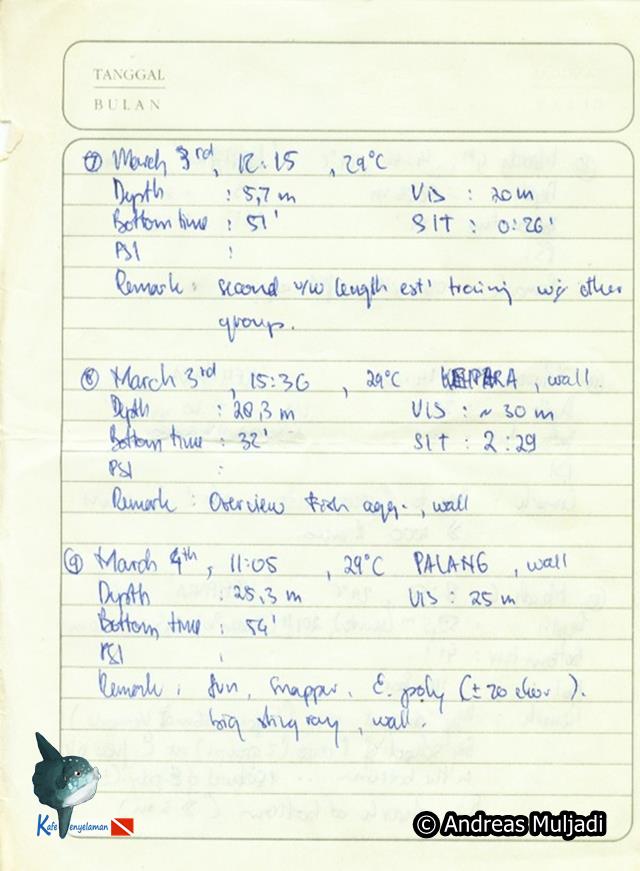 TANGGAL
BULAN
⑦ March 3rd, 12:15 , 29°C
Depth : 5,7 m Vis : 20 m
Bottom time : 51' SIT : 0:26'
PSI :
Remark : second u/w length est' training w/ other
groups.
⑧ March 3rd, 15:36 , 29°C KEPARA, wall
Depth : 28,3 m Vis : ~ 30 m
Bottom time : 32' SIT : 2:29
PSI :
Remark : Overview Fish agg., wall
⑨ March 4th, 11:05 , 29°C PALANG, wall
Depth : 25,3 m Vis : 25 m
Bottom time : 54'
PSI :
Remark : fun, snapper, E. poly (± 20 ekor).
big sting ray, wall
Kafe Penyelaman
© Andreas Muljadi